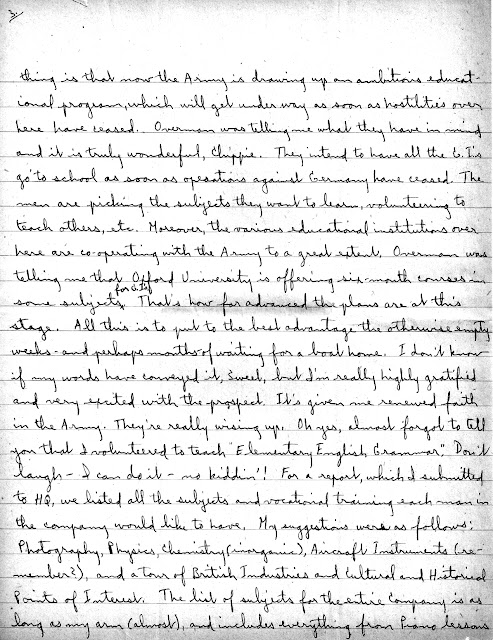 3.
thing is that now the Army is drawing up an ambitious educat-
ional program, which will get under way as soon as hostilities over
here have ceased. Overman was telling me what they have in mind
and it is truly wonderful, Chippie. They intend to have all the G.I.'s
go to school as soon as operations against Germany have ceased. The
men are picking the subjects they want to learn, volunteering to
teach others, etc. Moreover, the various educational institutions over
here are co-operating with the Army to a great extent. Overman was
telling me that Oxford University is offering six-month courses in
some subjects for G.I.s. That's how far advanced the plans are at this
stage. All this is to put to the best advantage the otherwise empty
weeks - and perhaps months - of waiting for a boat home. I don't know
if my words have conveyed it, Sweet, but I'm really highly gratified
and very excited with the prospect. It's given me renewed faith
in the Army. They're really wising up. Oh yes, almost forgot to tell
you that I volunteered to teach "Elementary English Grammar." Don't
laugh - I can do it - no kiddin'! For a report, which I submitted
to HQ, we listed all the subjects and vocational training each man in
the company would like to have. My suggestions were as follows:
Photography, Physics, Chemistry (inorganic), Aircraft Instruments (re-
member?), and a tour of British Industries and Cultural and Historical
Points of Interest. The list of subjects for the entire Company is as
long as my arm (almost), and includes everything from Piano lessons